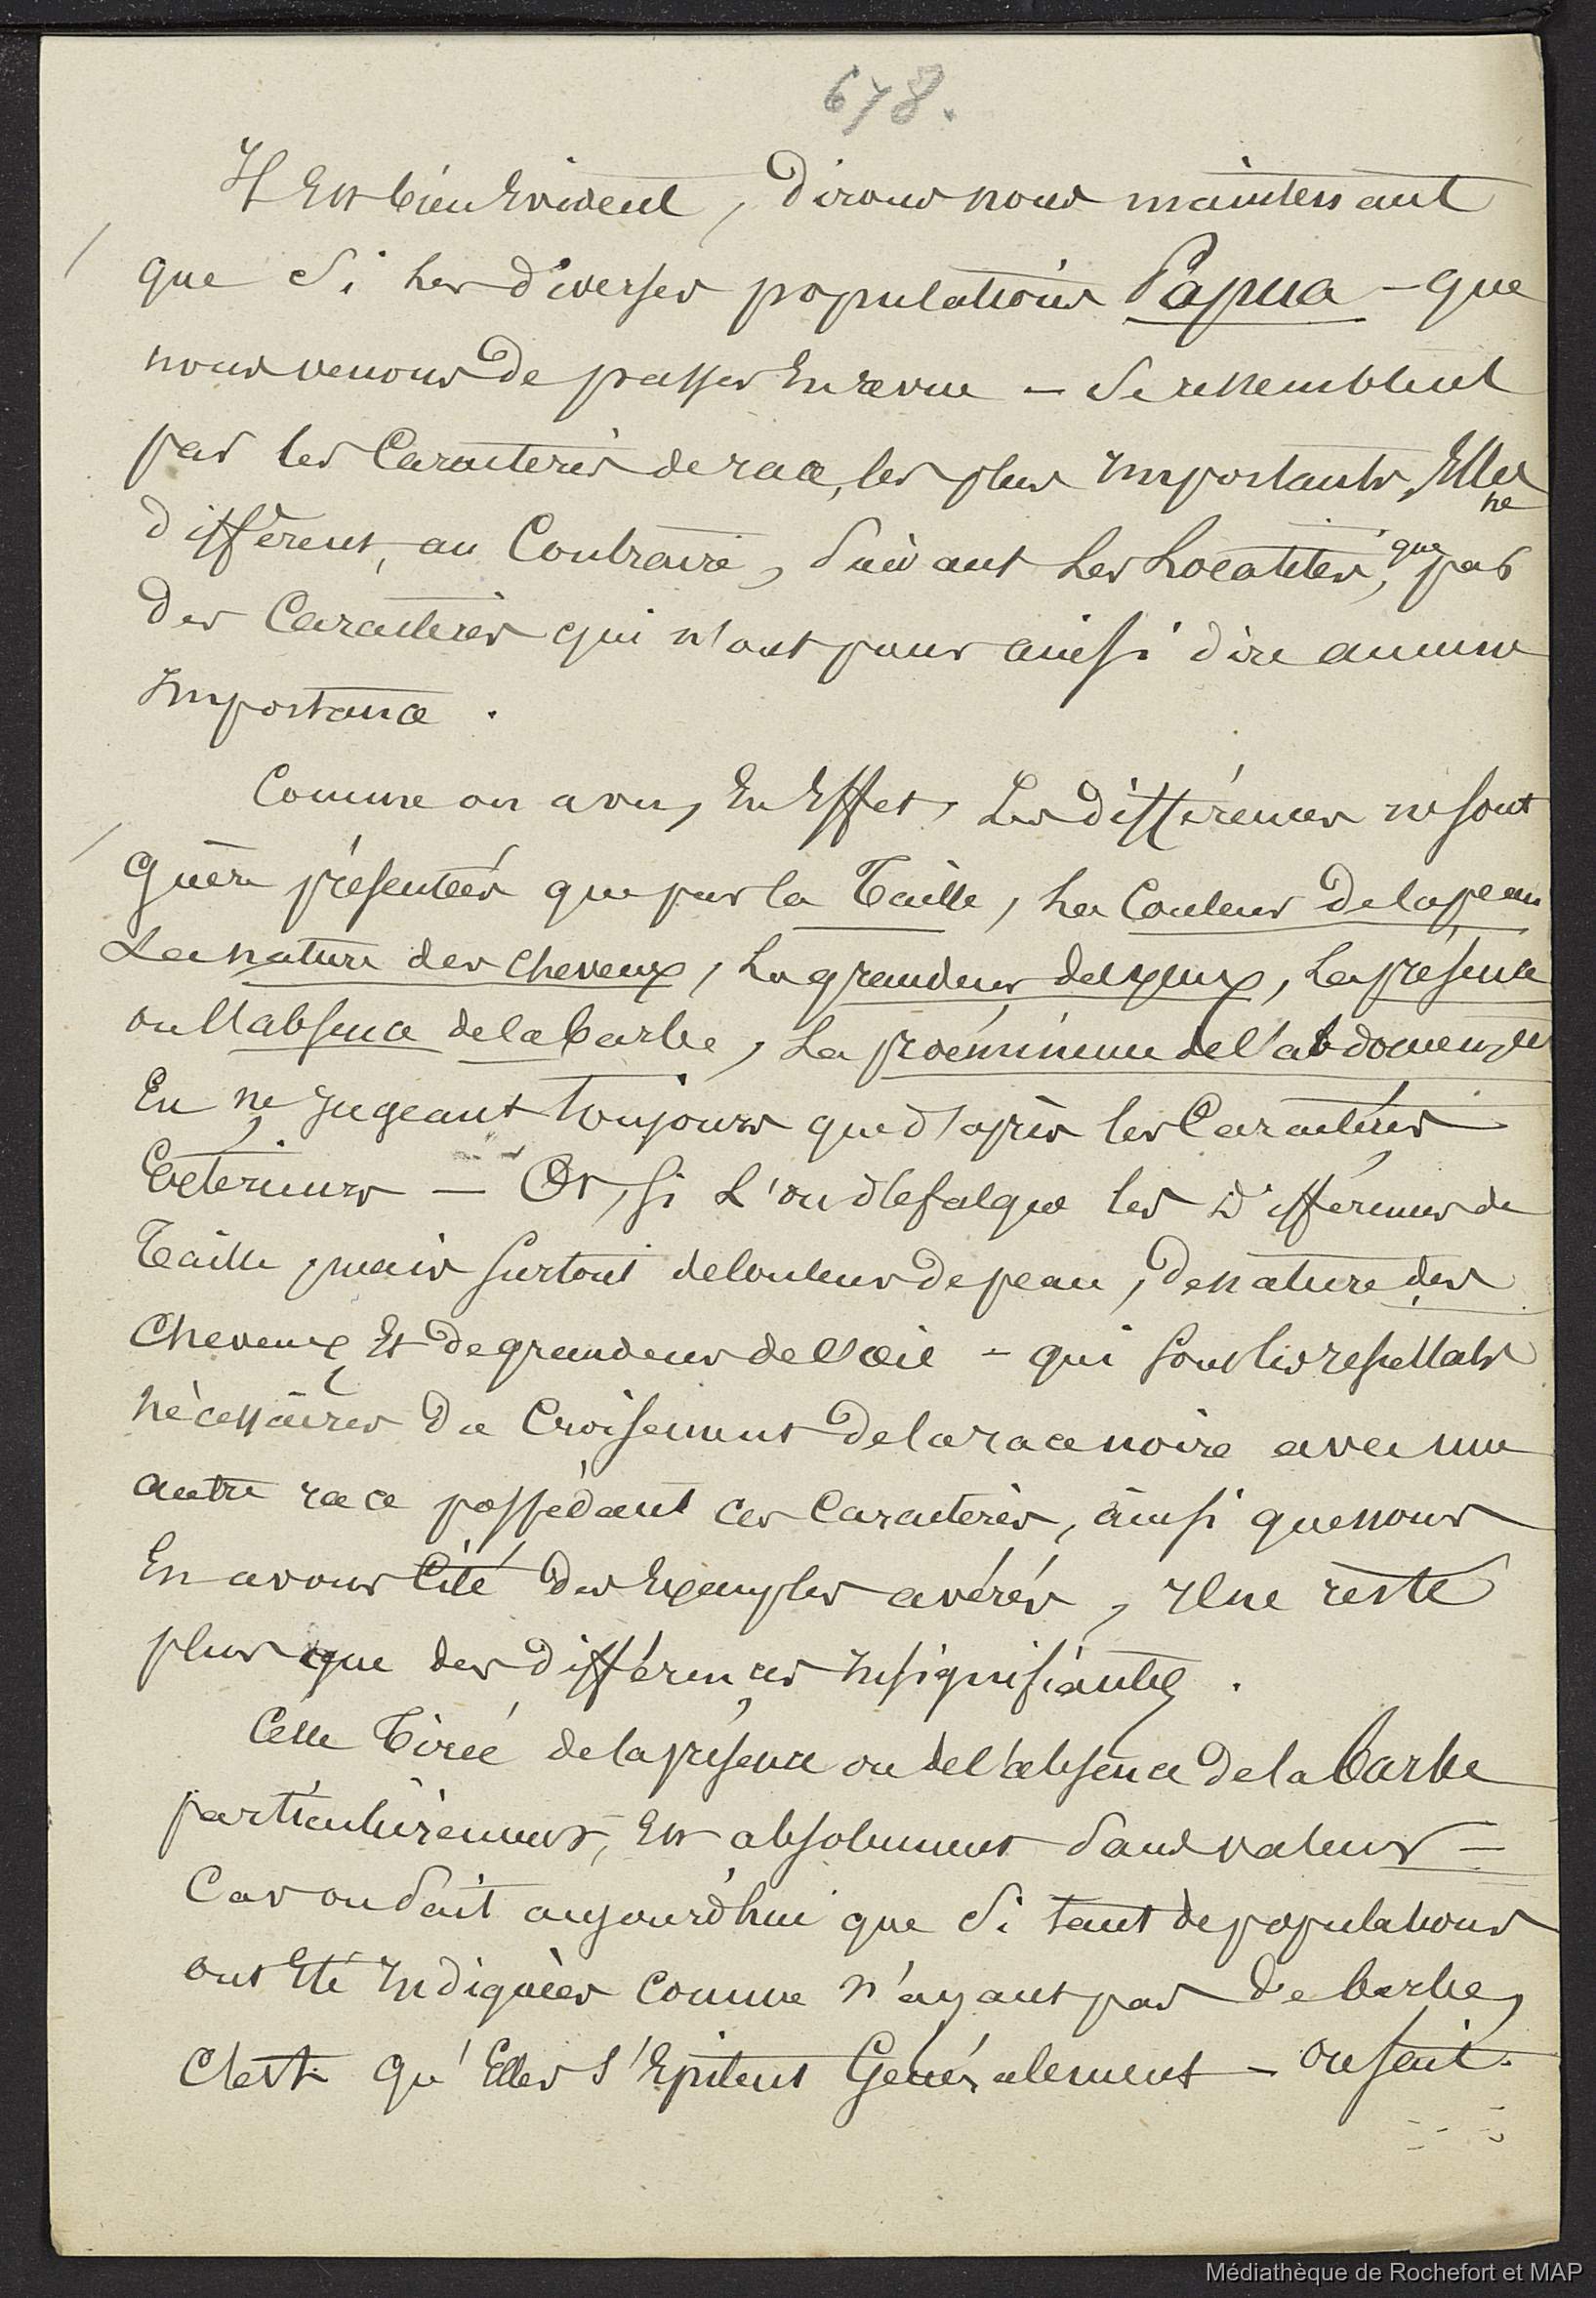 678.
Il Est bien Evident, dirons nous maintenant
que si les diverses populations Papua - que
nous venons de passer En revue - se ressemblent
par les Caractères de race, les plus Importants, Elles
ne
diffèrent, au Contraire, suivant les Localités, que par
des Caractères qui n'ont pour ainsi dire aucune
Importance.
Comme on a vu, En Effet, Les différences ne sont
guère présentées que par la Taille, la Couleur de la peau
La nature des cheveux, La grandeur des yeux, la présence
ou l'absence de la barbe, La proéminence de l'abdomen,
En ne Jugeant toujours que d'après les Caractères
Extérieurs — Or, si L'on défalque les différences de
Taille, mais surtout de Couleur de peau, de nature des
Cheveux Et de grandeur de l'œil - qui sont les résultats
nécessaires du Croisement de la race noire avec une
autre race possédant ces Caractères, ainsi que nous
En avons Cité des Exemples avérés, Il ne reste
plus que des différences Insignifiantes.
Celle Tirée de la présence ou de l'absence de la barbe
particulièrement, Est absolument sans valeur —
Car on sait aujourd'hui que si tant de populations
ont Eté Indiquées Comme n'ayant pas de barbe,
C'est qu'Elles s'Epilent Généralement - on sait
Médiathèque de Rochefort et MAP